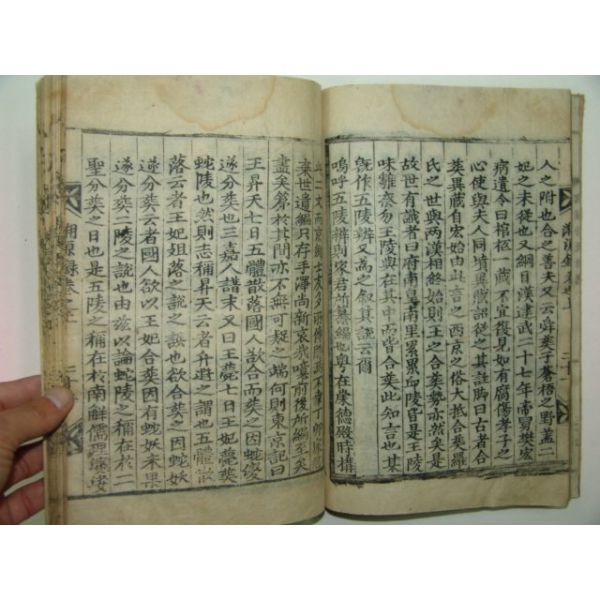 人之附也合之善夫又云舜葬于蒼梧之野蓋二
妃之未徙也又綱目漢建武二十七年帝舅樊宏
病遺令曰棺柩一藏不宜復見如有腐傷孝子之
心使與夫人同墳異藏註從之其註脚曰古者合
葬異藏自宏始由此言之西京之俗大抵合葬羅
氏之世與兩漢相終始則合葬勢亦然矣是
故世有識者曰府南皇南里累累卬陵皆是王陵
味雖柰勿王陵與在其中而皆合葬此知也某
旣作五陵辨又爲之叙其說云爾
嗚呼五陵辨則家君所纂編也粤在慶德殿時搆
棄世遺編只存手澤尚新哀哉嗟前後所編至矣
盡矣第於其間亦不無可疑之端何則東京記曰
王昇天七日五體散落國人欲合而葬之因蛇俊
遂分葬也三嘉人諱末又曰王薨七日王妃薨葬
蛇陵也然則志稱昇天云者升遐之謂也五體散
落云者王妃殂落之說之誤也欲合葬之因蛇妖
遂分葬云者國人欲以王妃合葬因有蛇妖未果
遂分葬二陵之說也由茲以論蛇陵之稱在於二
聖分葬之日也是五陵之稱在於南鮮儒理
湘源錄卷之上